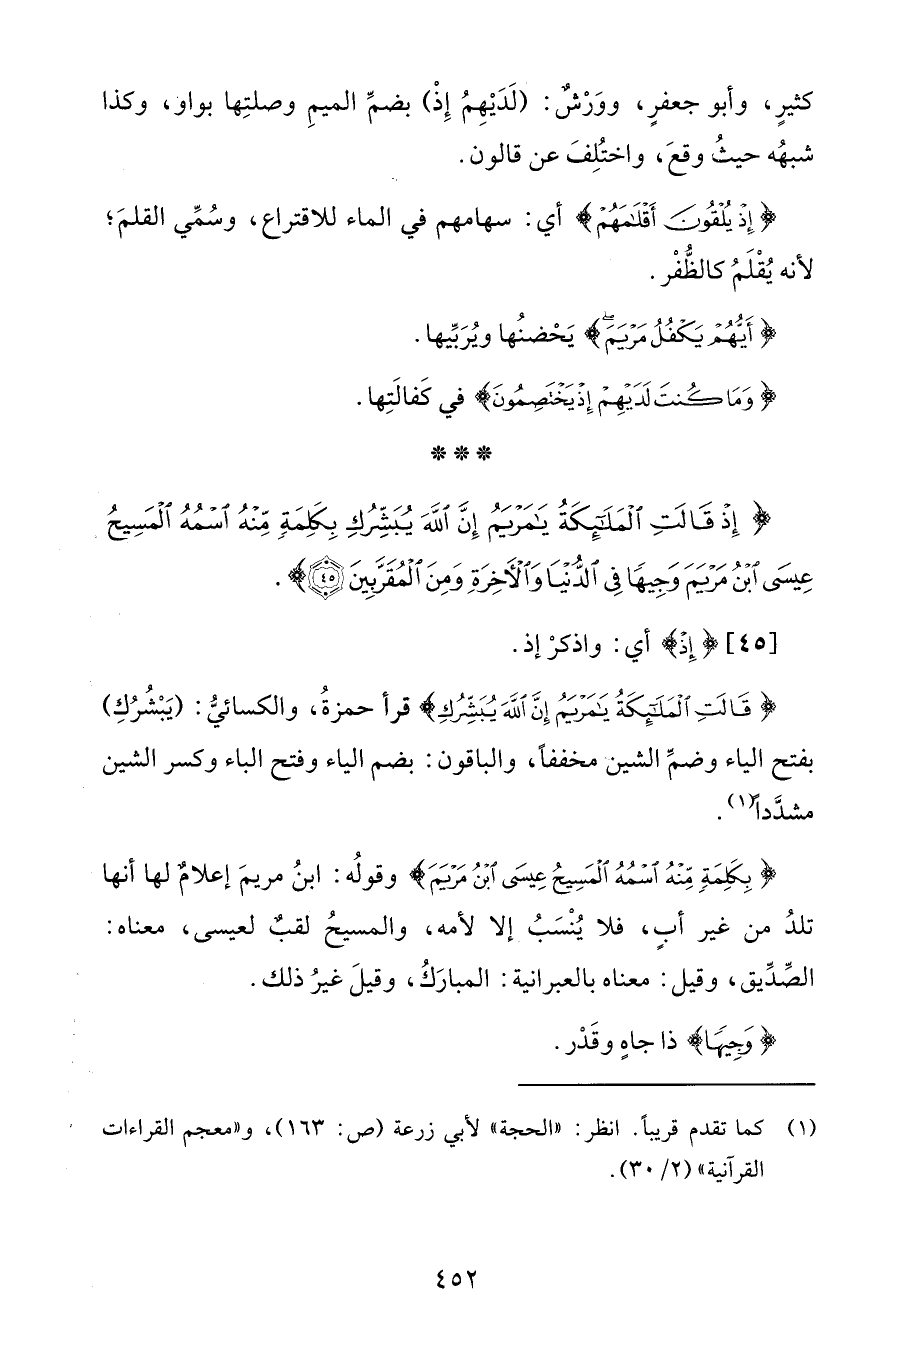 كثيرٍ، وأبو جعفرٍ، ووَرْشٌ: (لَدَيْهِمُ إِذْ) بضمِّ الميمِ وصلتِها بواو، وكذا
شبهُه حيثُ وقعَ، واختُلِفَ عن قالون.
﴿إِذْ يُلْقُونَ أَقْلَٰمَهُمْ﴾ أي: سهامهم في الماء للاقتراع، وسُمِّي القلمَ؛
لأنه يُقْلَمُ كالظُّفْر.
﴿أَيُّهُمْ يَكْفُلُ مَرْيَمَۖ﴾ يَحْضنُها ويُرَبِّيها.
﴿وَمَا كُنتَ لَدَيْهِمْ إِذْ يَخْتَصِمُونَ﴾ في كَفالَتِها.
* * *
﴿إِذْ قَالَتِ ٱلْمَلَٰٓئِكَةُ يَٰمَرْيَمُ إِنَّ ٱللَّهَ يُبَشِّرُكِ بِكَلِمَةٍ مِّنْهُ ٱسْمُهُ ٱلْمَسِيحُ
عِيسَى ٱبْنُ مَرْيَمَ وَجِيهًا فِي ٱلدُّنْيَا وَٱلْأَخِرَةِ وَمِنَ ٱلْمُقَرَّبِينَ ٤٥﴾.
[٤٥] ﴿إِذْ﴾ أي: واذكرْ إذ.
﴿قَالَتِ ٱلْمَلَٰٓئِكَةُ يَٰمَرْيَمُ إِنَّ ٱللَّهَ يُبَشِّرُكِ﴾ قرأ حمزةُ، والكسائيُّ: (يَبْشُرُكِ)
بفتح الياء وضمِّ الشين مخففاً، والباقون: بضم الياء وفتح الباء وكسر الشين
مشدَّداً(١).
﴿بِكَلِمَةٍ مِّنْهُ ٱسْمُهُ ٱلْمَسِيحُ عِيسَى ٱبْنُ مَرْيَمَ﴾ وقولُه: ابنُ مريمَ إعلامٌ لها أنها
تلدُ من غير أبٍ، فلا يُنْسَبُ إلا لأمه، والمسيحُ لقبٌ لعيسى، معناه:
الصِّدِّيق، وقيل: معناه بالعبرانية: المبارَكُ، وقيلَ غيرُ ذلك.
﴿وَجِيهًا﴾ ذا جاهٍ وقَدْر.
(١) كما تقدم قريباً. انظر: «الحجة» لأبي زرعة (ص: ١٦٣)، و«معجم القراءات
القرآنية» (٢/ ٣٠).
٤٥٢